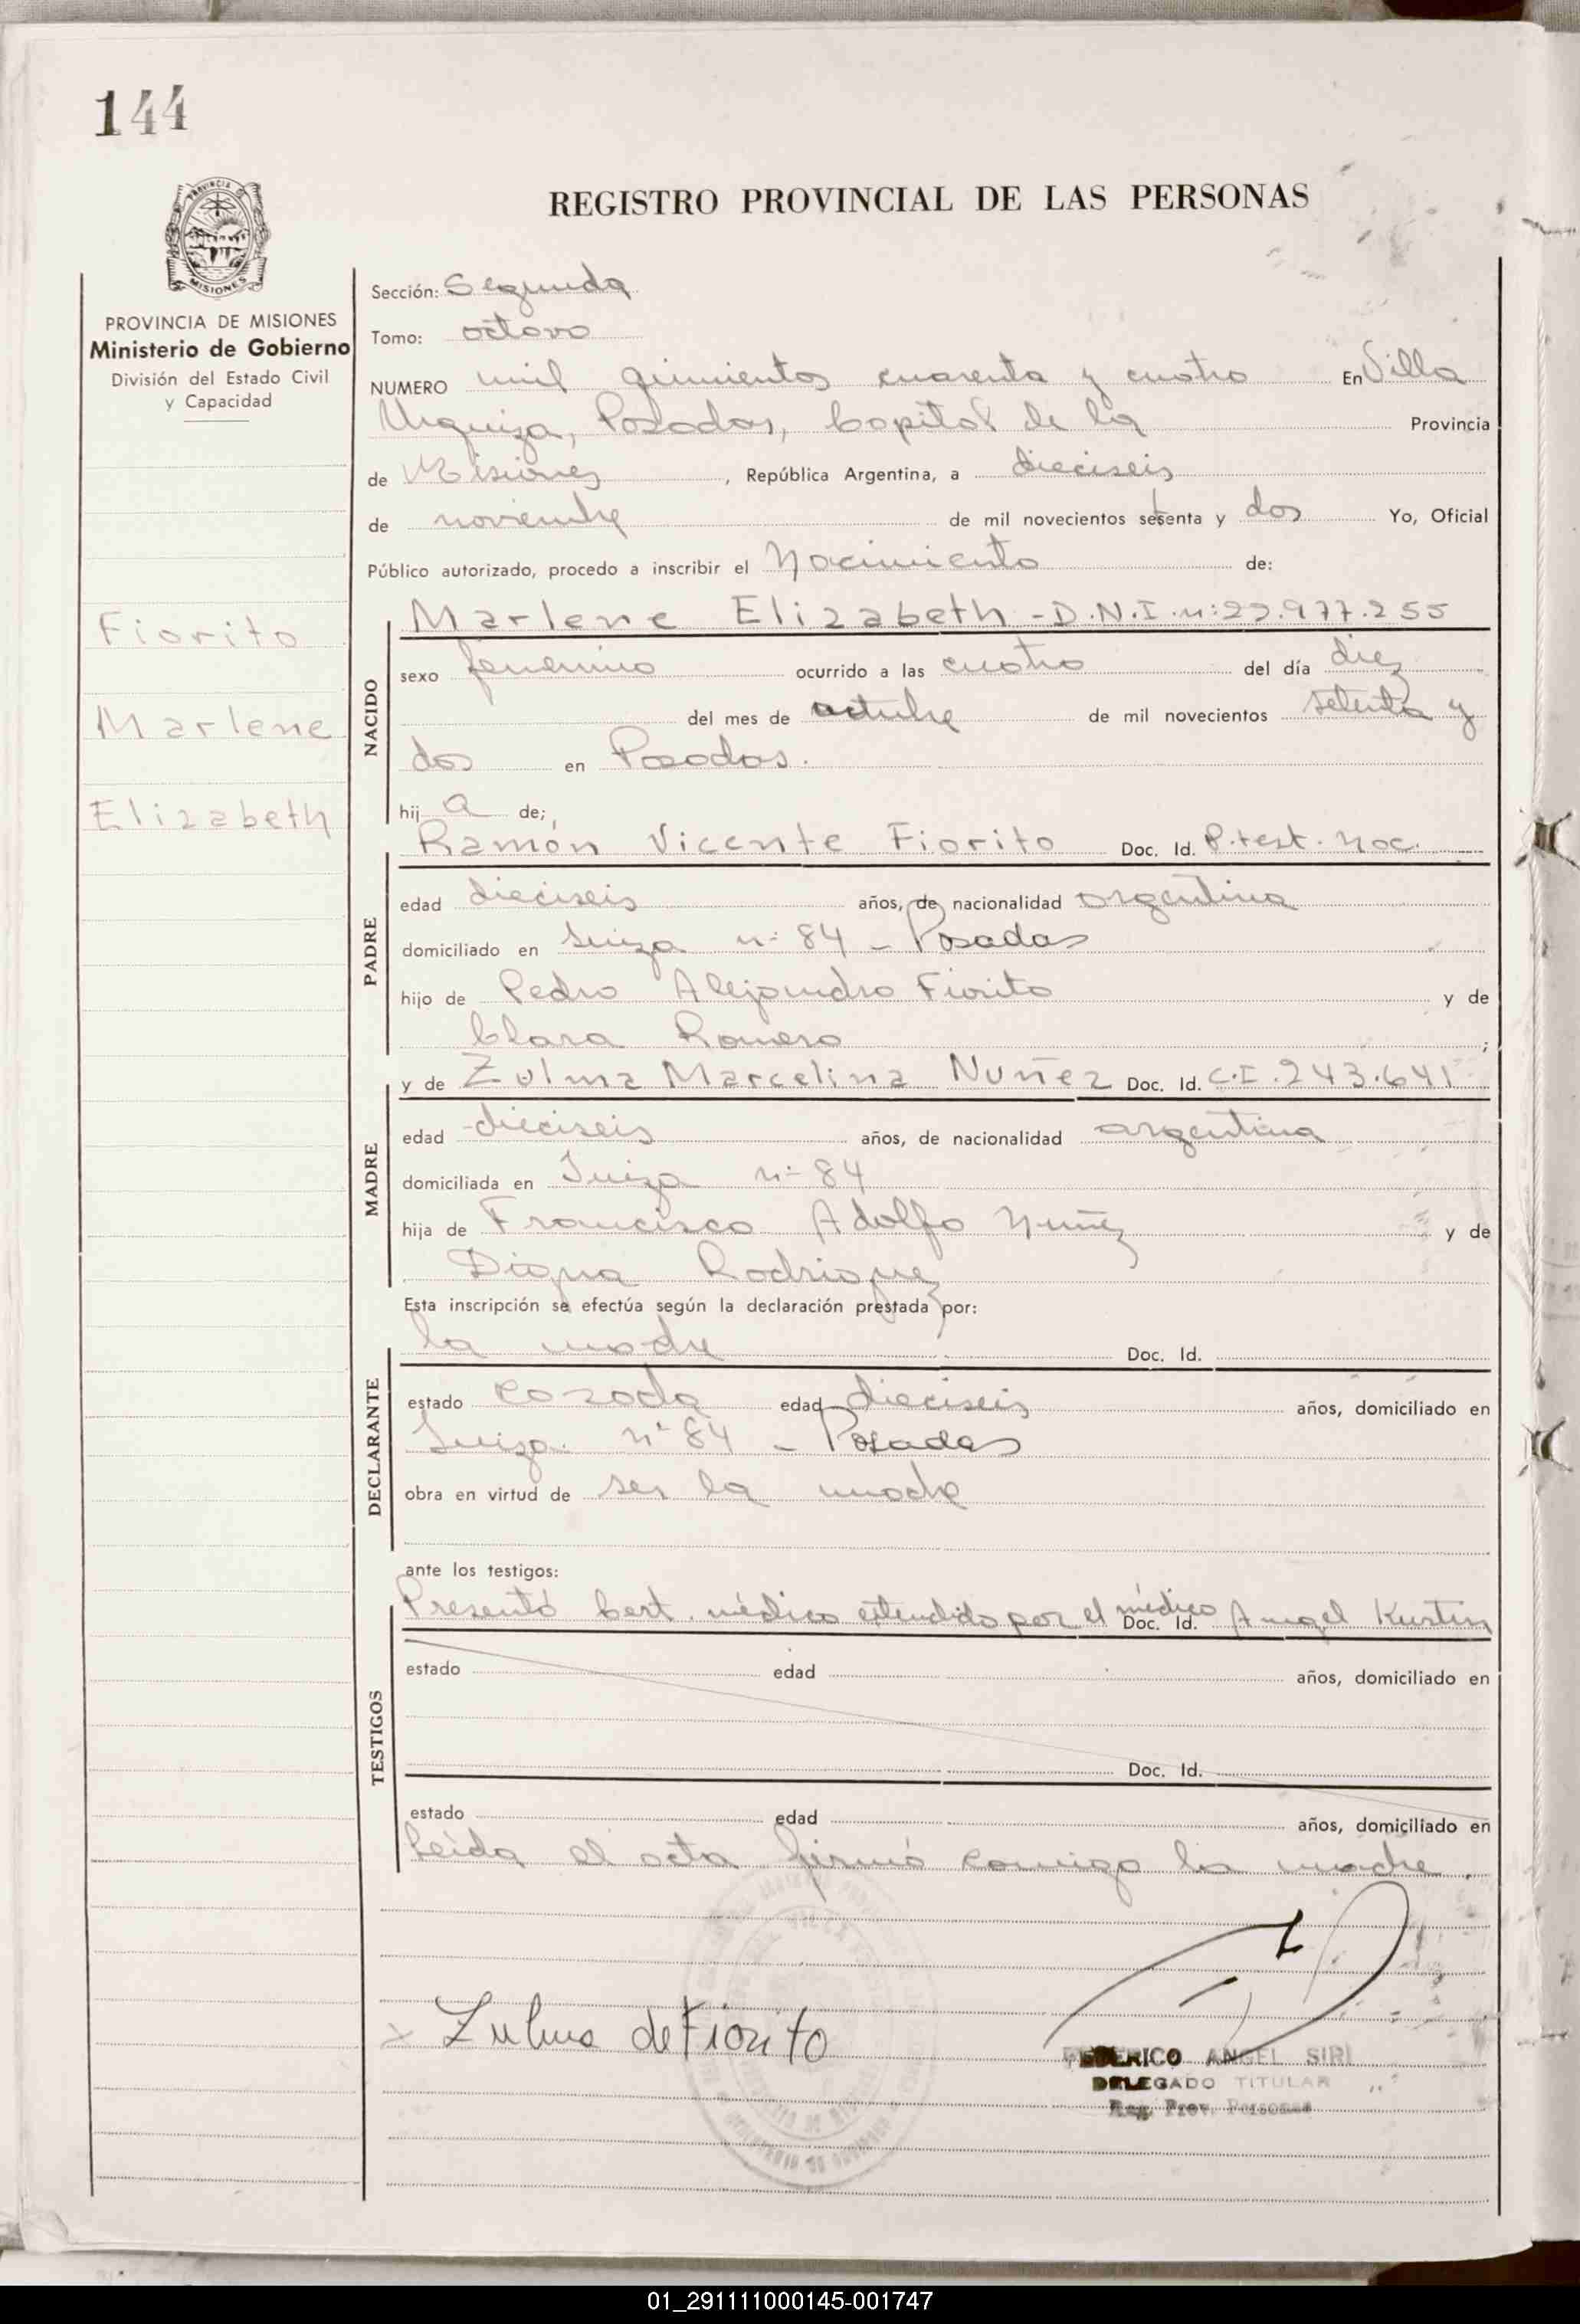 144
REGISTRO PROVINCIAL DE LAS PERSONAS
PROVINCIA DE
MISIONES
PROVINCIA DE MISIONES
Ministerio de Gobierno
División del Estado Civil
y Capacidad
Fiorito
Marlene
Elizabeth
Sección: Segunda
Tomo: octavo
NUMERO mil quinientos cuarenta y cuatro En Villa
Urquiza, Posadas, Capital de la Provincia
de Misiones, República Argentina, a dieciseis
de noviembre de mil novecientos setenta y dos Yo, Oficial
Público autorizado, procedo a inscribir el Nacimiento de:
Marlene Elizabeth - D.N.I. n: 22.977.255
NACIDO
sexo femenino ocurrido a las cuatro del día diez
del mes de octubre de mil novecientos setenta y
dos en Posadas.
hij a de;
Ramón Vicente Fiorito Doc. Id. P. test. Nac.
PADRE
edad dieciseis años, de nacionalidad argentina
domiciliado en Suiza n: 84 - Posadas
hijo de Pedro Alejandro Fiorito y de
Clara Romero ;
y de Zulma Marcelina Nuñez Doc. Id. C.I. 243.641
MADRE
edad dieciseis años, de nacionalidad argentina
domiciliada en Suiza n: 84
hija de Francisco Adolfo Nuñez y de
Digna Rodriguez
Esta inscripción se efectúa según la declaración prestada por:
la madre Doc. Id.
DECLARANTE
estado casada edad dieciseis años, domiciliado en
Suiza n: 84 - Posadas
obra en virtud de ser la madre
ante los testigos:
Presentó Cert. médico extendido por el médico Doc. Id. Angel Kusten
TESTIGOS
estado edad años, domiciliado en
Doc. Id.
estado edad años, domiciliado en
Leída el acta firmó conmigo la madre.
x Zulma de Fiorito
FEDERICO ANGEL SIRI
DELEGADO TITULAR
Reg. Prov. Personas
01_291111000145-001747